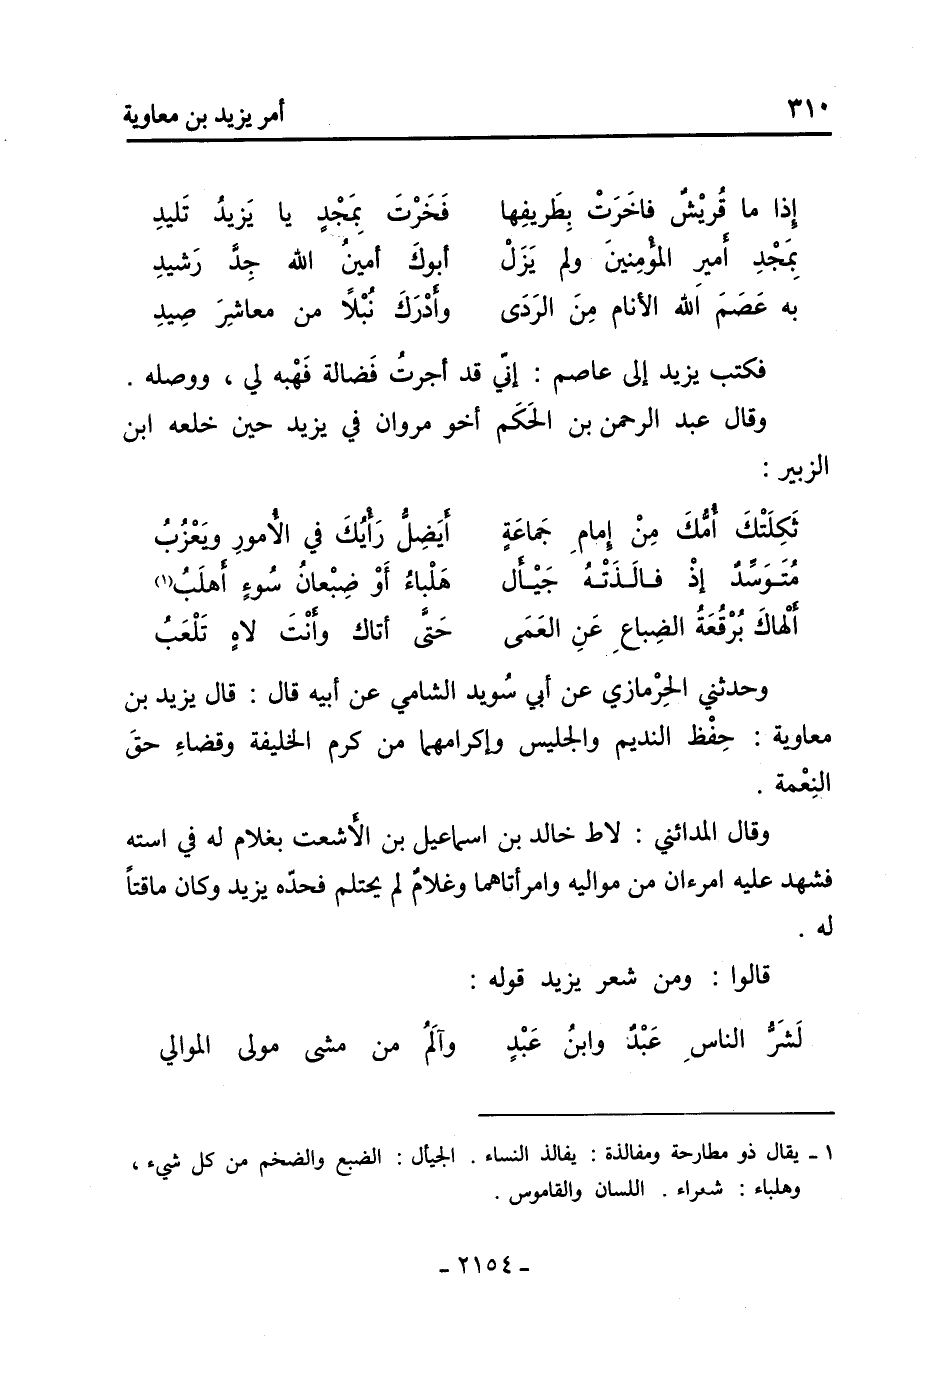 ٣١٠ أمر يزيد بن معاوية
إذا ما قُرَيْشٌ فاخَرَتْ بِطَريفِها فَخَرْتَ بِمَجْدٍ يا يَزيدُ تَليدِ
بِمَجْدِ أَميرِ المُؤْمِنينَ ولم يَزَلْ أبوكَ أمينُ الله جِدَّ رَشيدِ
به عَصَمَ الله الأنام مِنَ الرَدَى وأَدْرَكَ نُبْلًا من معاشِرَ صِيدِ
فكتب يزيد إلى عاصم : إنّي قد أجرتُ فَضالة فَهْبه لي ، ووصله .
وقال عبد الرحمن بن الحَكَم أخو مروان في يزيد حين خلعه ابن
الزبير :
ثَكِلَتْكَ أُمُّكَ مِنْ إمامِ جَماعَةٍ أَيَضِلُّ رَأْيُكَ في الأُمورِ ويَعْزُبُ
مُتَوَسِّدٌ إذْ فالَذَتْهُ جَيْأَل هَلْباءُ أَوْ ضِبْعانُ سُوءٍ أَهلَبُ(١)
أَلْهاكَ بُرْقُعَةُ الضِباعِ عَنِ العَمَى حَتَّى أتاك وأَنْتَ لاهٍ تَلْعَبُ
وحدثني الحِرْمازي عن أبي سُويد الشامي عن أبيه قال : قال يزيد بن
معاوية : حِفْظ النديم والجليس وإكرامهما من كرم الخليفة وقضاءِ حقّ
النِعْمة .
وقال المدائني : لاط خالد بن اسماعيل بن الأَشعت بغلام له في استه
فشهد عليه امرءان من مواليه وامرأتاهما وغلامٌ لم يحتلم فحدّه يزيد وكان ماقتاً
له .
قالوا : ومن شعر يزيد قوله :
لَشَرُّ الناسِ عَبْدٌ وابنُ عَبْدٍ وآلَمُ من مشى مولى الموالي
١ ـ يقال ذو مطارحة ومفالذة : يفالذ النساء . الجيأل : الضبع والضخم من كل شيء ،
وهلباء : شعراء . اللسان والقاموس .
ـ ٢١٥٤ ـ